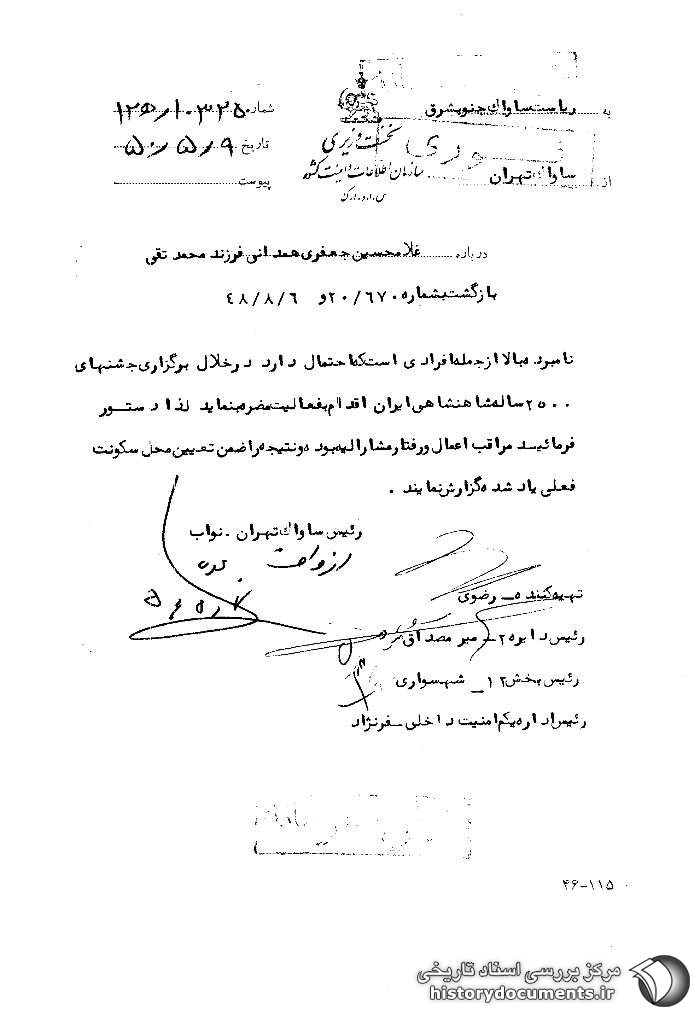 به ریاست ساواک جنوبشرق
از ساواک تهران
فوری
نخست وزیری
سازمان اطلاعات و امنیت کشور
س.ا.و.ا.ک
شماره
تاریخ ۵۰/۵/۹
پیوست
درباره غلامحسین جعفری همدانی فرزند محمد تقی
بازگشت بشماره ۲۰/۶۷۰ و ۴۸/۸/۶
نامبرده بالا از جمله افرادی است که احتمال دارد در خلال برگزاری جشنهای
۲۵۰۰ ساله شاهنشاهی ایران اقدام بفعالیت مضره بنماید لذا دستور
فرمائید مراقب اعمال و رفتار مشارالیه بوده و نتیجه را ضمن تعیین محل سکونت
فعلی یاد شده گزارش نمایند .
رئیس ساواک تهران . نواب
تهیه کننده _ رضوی
رئیس دایره ۲ _ میر مصداق
رئیس بخش ۱۲ _ شهسواری
رئیس اداره یکم امنیت داخلی سفرنژاد
۴۶-۱۱۵
مرکز بررسی اسناد تاریخی
historydocuments.ir